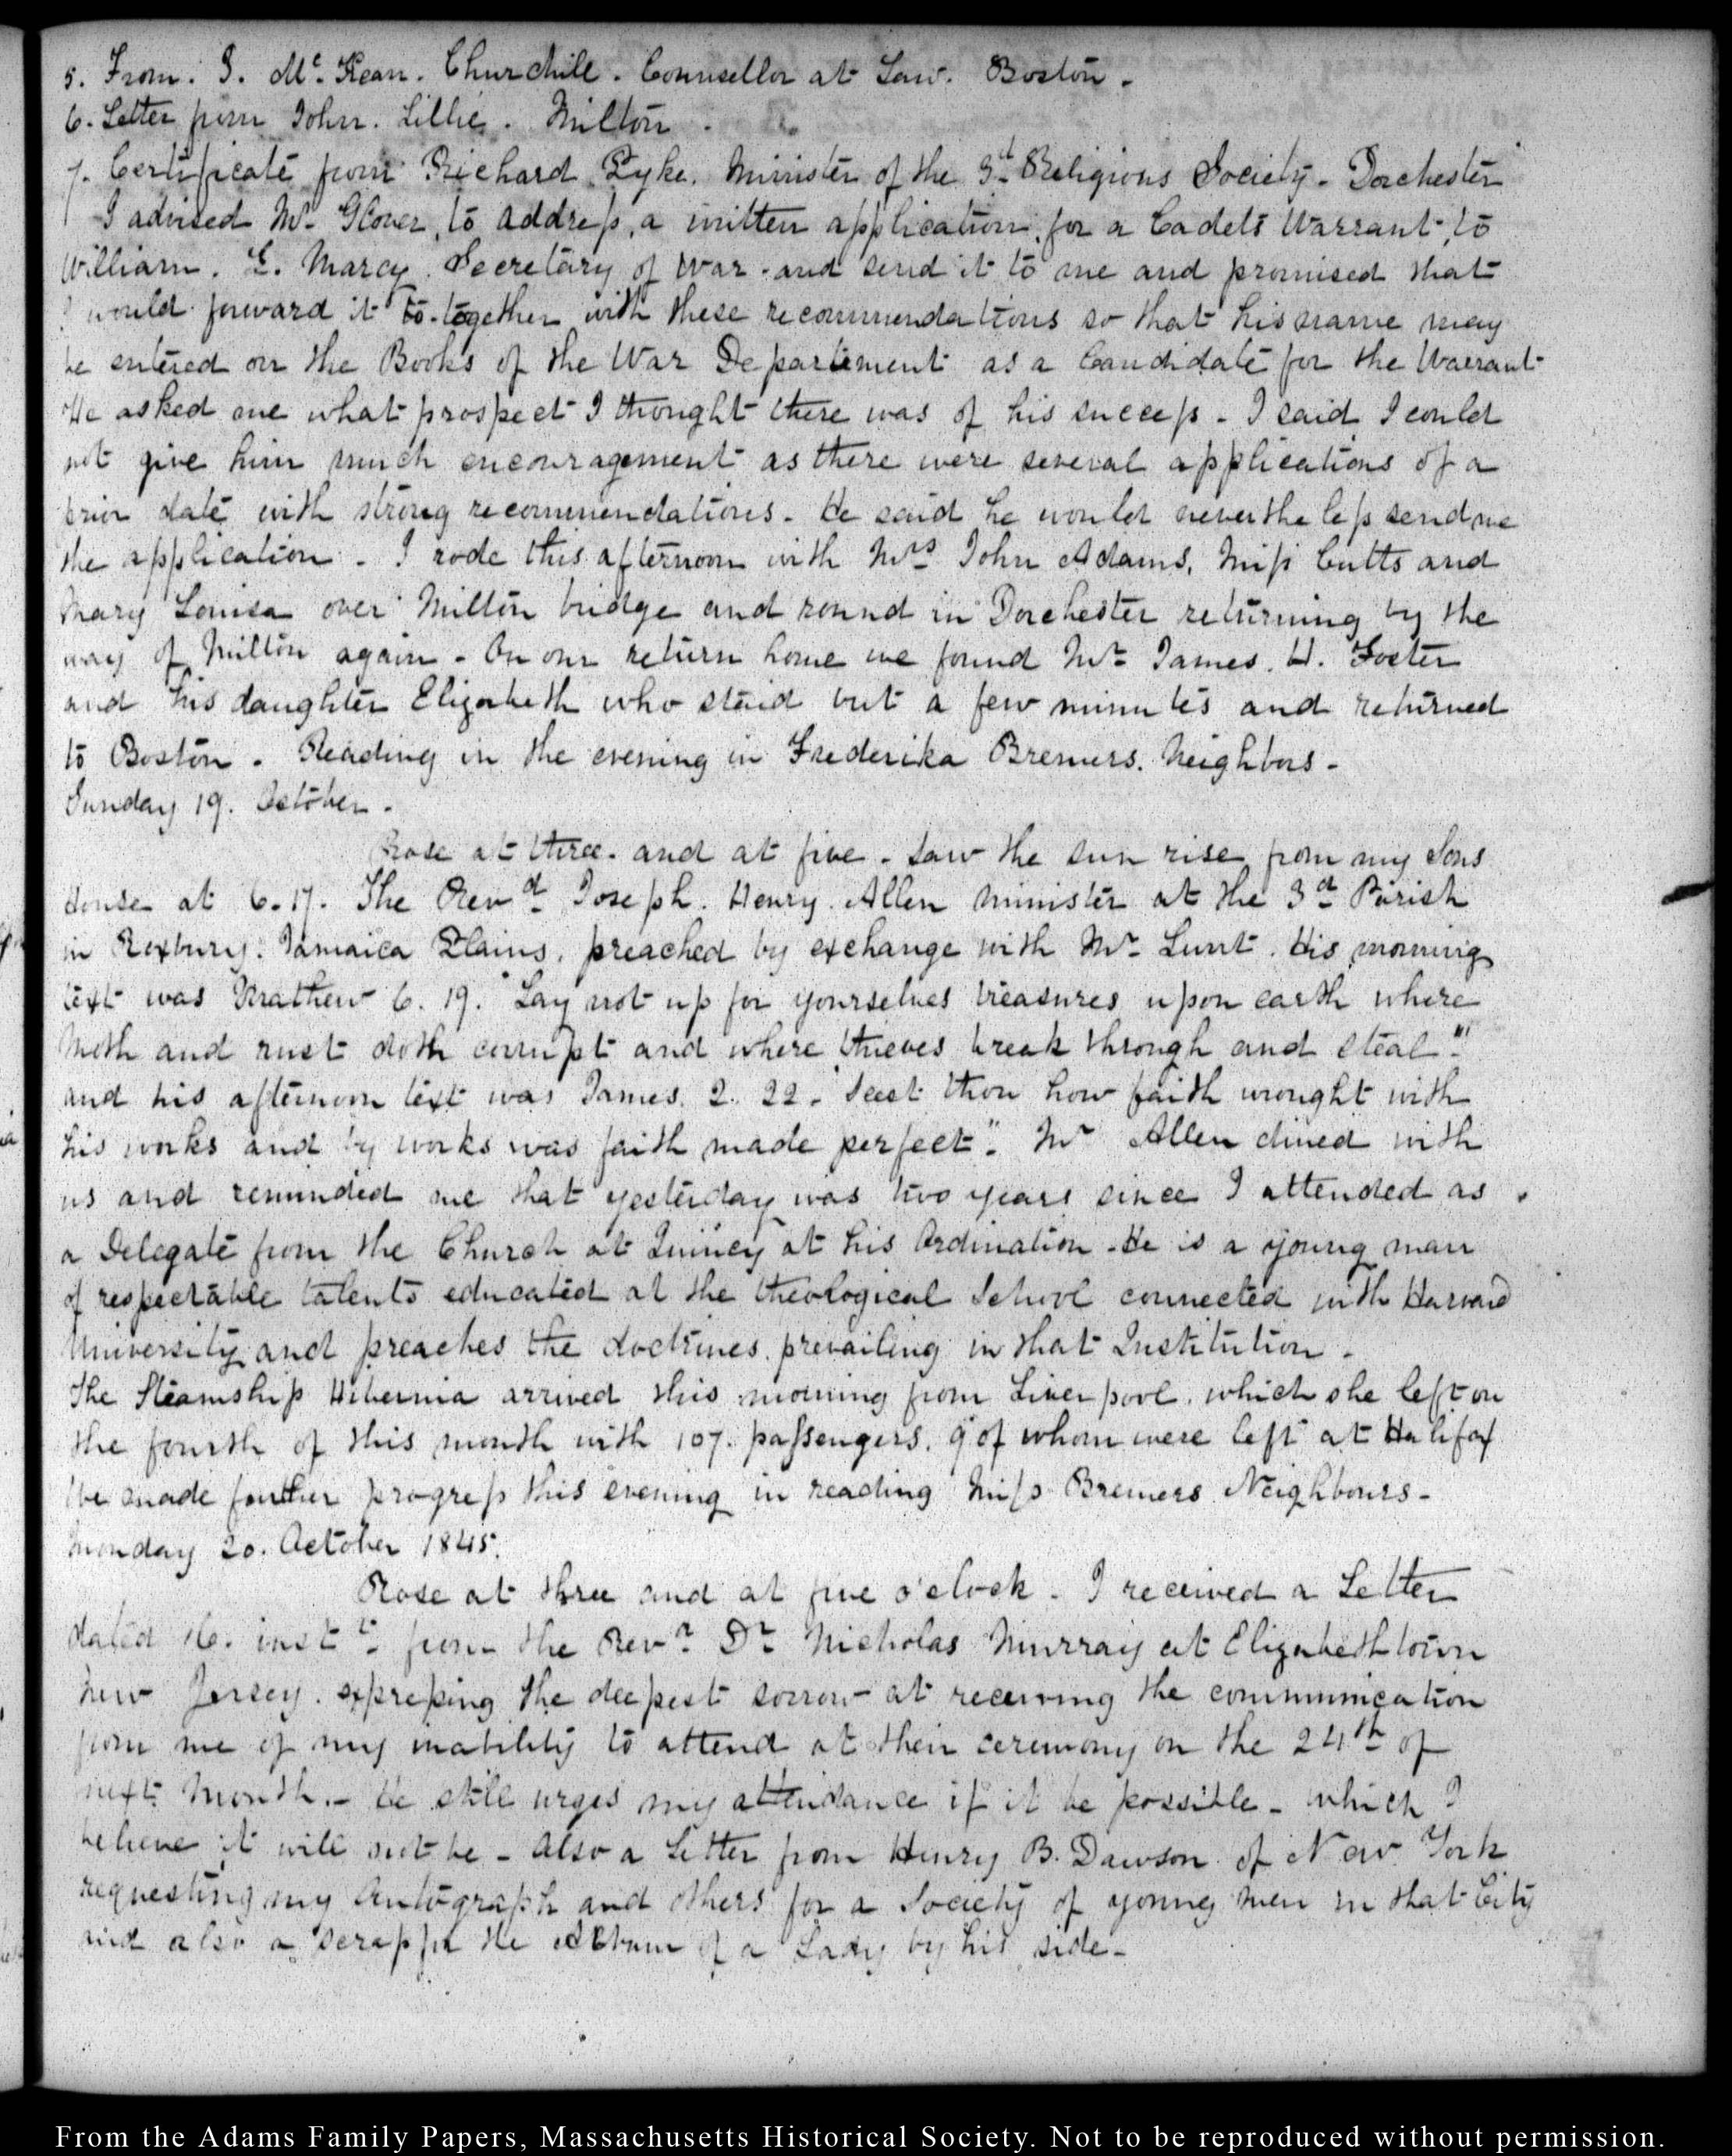 5. From. J. McKean. Churchill. Counsellor at Law. Boston -
6. Letter from John. Lillie. Milton.
7. Certificate from Richard Pyke. Minister of the 3d. Religious Society - Dorchester
I advised Mr. Glover, to address, a written application, for a Cadets Warrant, to
William. L. Marcy. Secretary of War. and send it to me and promised that
I would forward it to together with these recommendations so that his name may
be entered on the Books of the War Department as a Candidate for the Warrant
He asked me what prospect I thought there was of his success - I said I could
not give him much encouragement as there were several applications of a
prior date with strong recommendations. He said he would nevertheless send me
the application. I rode this afternoon with Mrs. John Adams, Miss Cutts and
Mary Louisa over Milton bridge and round in Dorchester returning by the
way of Milton again - On our return home we found Mr. James. H. Foster
and his daughter Elizabeth who staid but a few minutes and returned
to Boston. Reading in the evening in Frederika Bremers. Neighbors -
Sunday 19. October.
Rose at three. and at five. Saw the sun rise from my Sons
House at 6.17. The Revd. Joseph. Henry. Allen Minister at the 3d. Parish
in Roxbury. Jamaica Plains, preached by exchange with Mr. Lunt. His morning
text was Mathew 6. 19. "Lay not up for yourselves treasures upon earth where
Moth and rust doth corrupt and where thieves break through and steal."
and his afternoon text was James. 2. 22. Seest thou how faith wrought with
his works and by works was faith made perfect". Mr Allen dined with
us and reminded me that yesterday was two years since I attended as
a Delegate from the Church at Quincy at his Ordination - He is a young man
of respectable talents educated at the theological School connected with Harvard
University and preaches the doctrines prevailing in that Institution.
The Steamship Hibernia arrived this morning from Liverpool. which she left on
the fourth of this month with 107. passengers. 9 of whom were left at Halifax
We made further progress this evening in reading Miss Bremers Neighbours -
Monday 20. October 1845.
Rose at three and at five o'clock. I received a Letter
dated 16. instt. from the Revd. Dr. Nicholas Murray at Elizabethtown
New Jersey. expressing the deepest sorrow at receiving the communication
from me of my inability to attend at their ceremony on the 24th. of
next Month. - He still urges my attendance if it be possible - which I
believe it will not be - Also a Letter from Henry B. Dawson of New York
requesting my Autograph and others for a Society of young men in that City
and also a scrap for the Album of a Lady by his side -
From the Adams Family Papers, Massachusetts Historical Society. Not to be reproduced without permission.